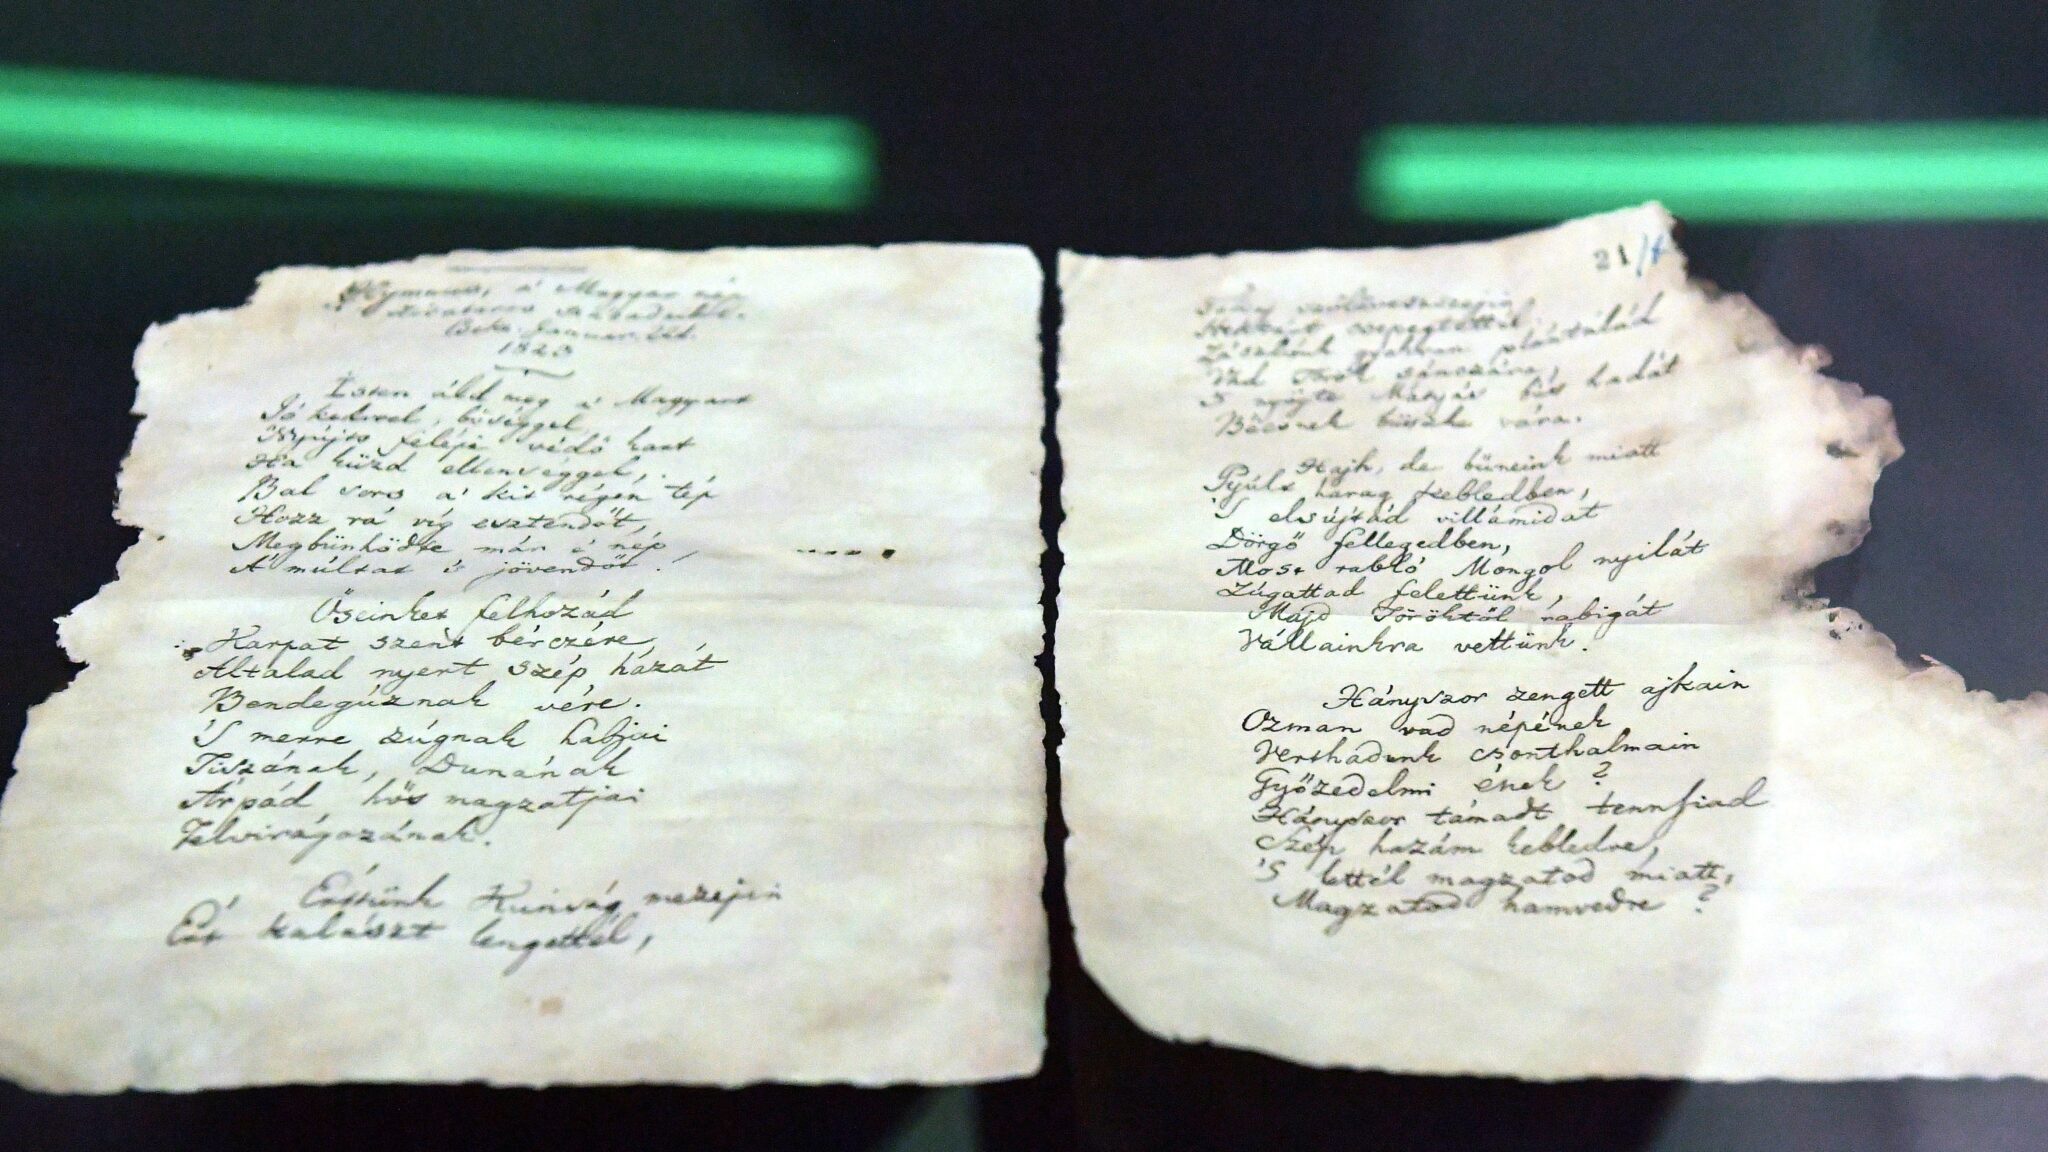 Hymnus, a' Magyar nép
zivataros századaiból.
Cseke. Januar. 22d.
1823
Isten áldd meg a' Magyart
Jó kedvvel, bőséggel,
Nyújts felépe védő kart
Ha küzd ellenséggel,
Bal sors a' kit régen tép
Hozz rá víg esztendőt,
Megbünhődte már e' nép
A' múltat 's jövendőt!
Őseinket felhozád
Karpat szent bérczére,
Általad nyert szép hazát
Bendegúznak vére.
'S merre zúgnak habjai
Tiszának, Dunának
Árpád hős magzatjai
Felvirágozának.
Értünk Kunság mezején
Ért kalászt lengettél,
21/4
Tokaj szőlővesszején
Nektárt csepegtettél.
Zászlónk gyakran plántálád
Vad Török sánczára,
'S nyögte Mátyás bús hadát
Bécsnek büszke vára.
Hajh, de bűneink miatt
Gyúlt harag kebledben,
'S elsújtád villámidat
Dörgő fellegedben,
Most rabló Mongol nyilát
Zúgattad felettünk,
Majd Töröktől rabigát
Vállainkra vettünk.
Hányszor zengett ajkain
Ozman vad népének
Vert hadunk csonthalmain
Győzedelmi ének?
Hányszor támadt tennfiad
Szép hazám kebledre,
'S lettél magzatod miatt,
Magzatod hamvedre?